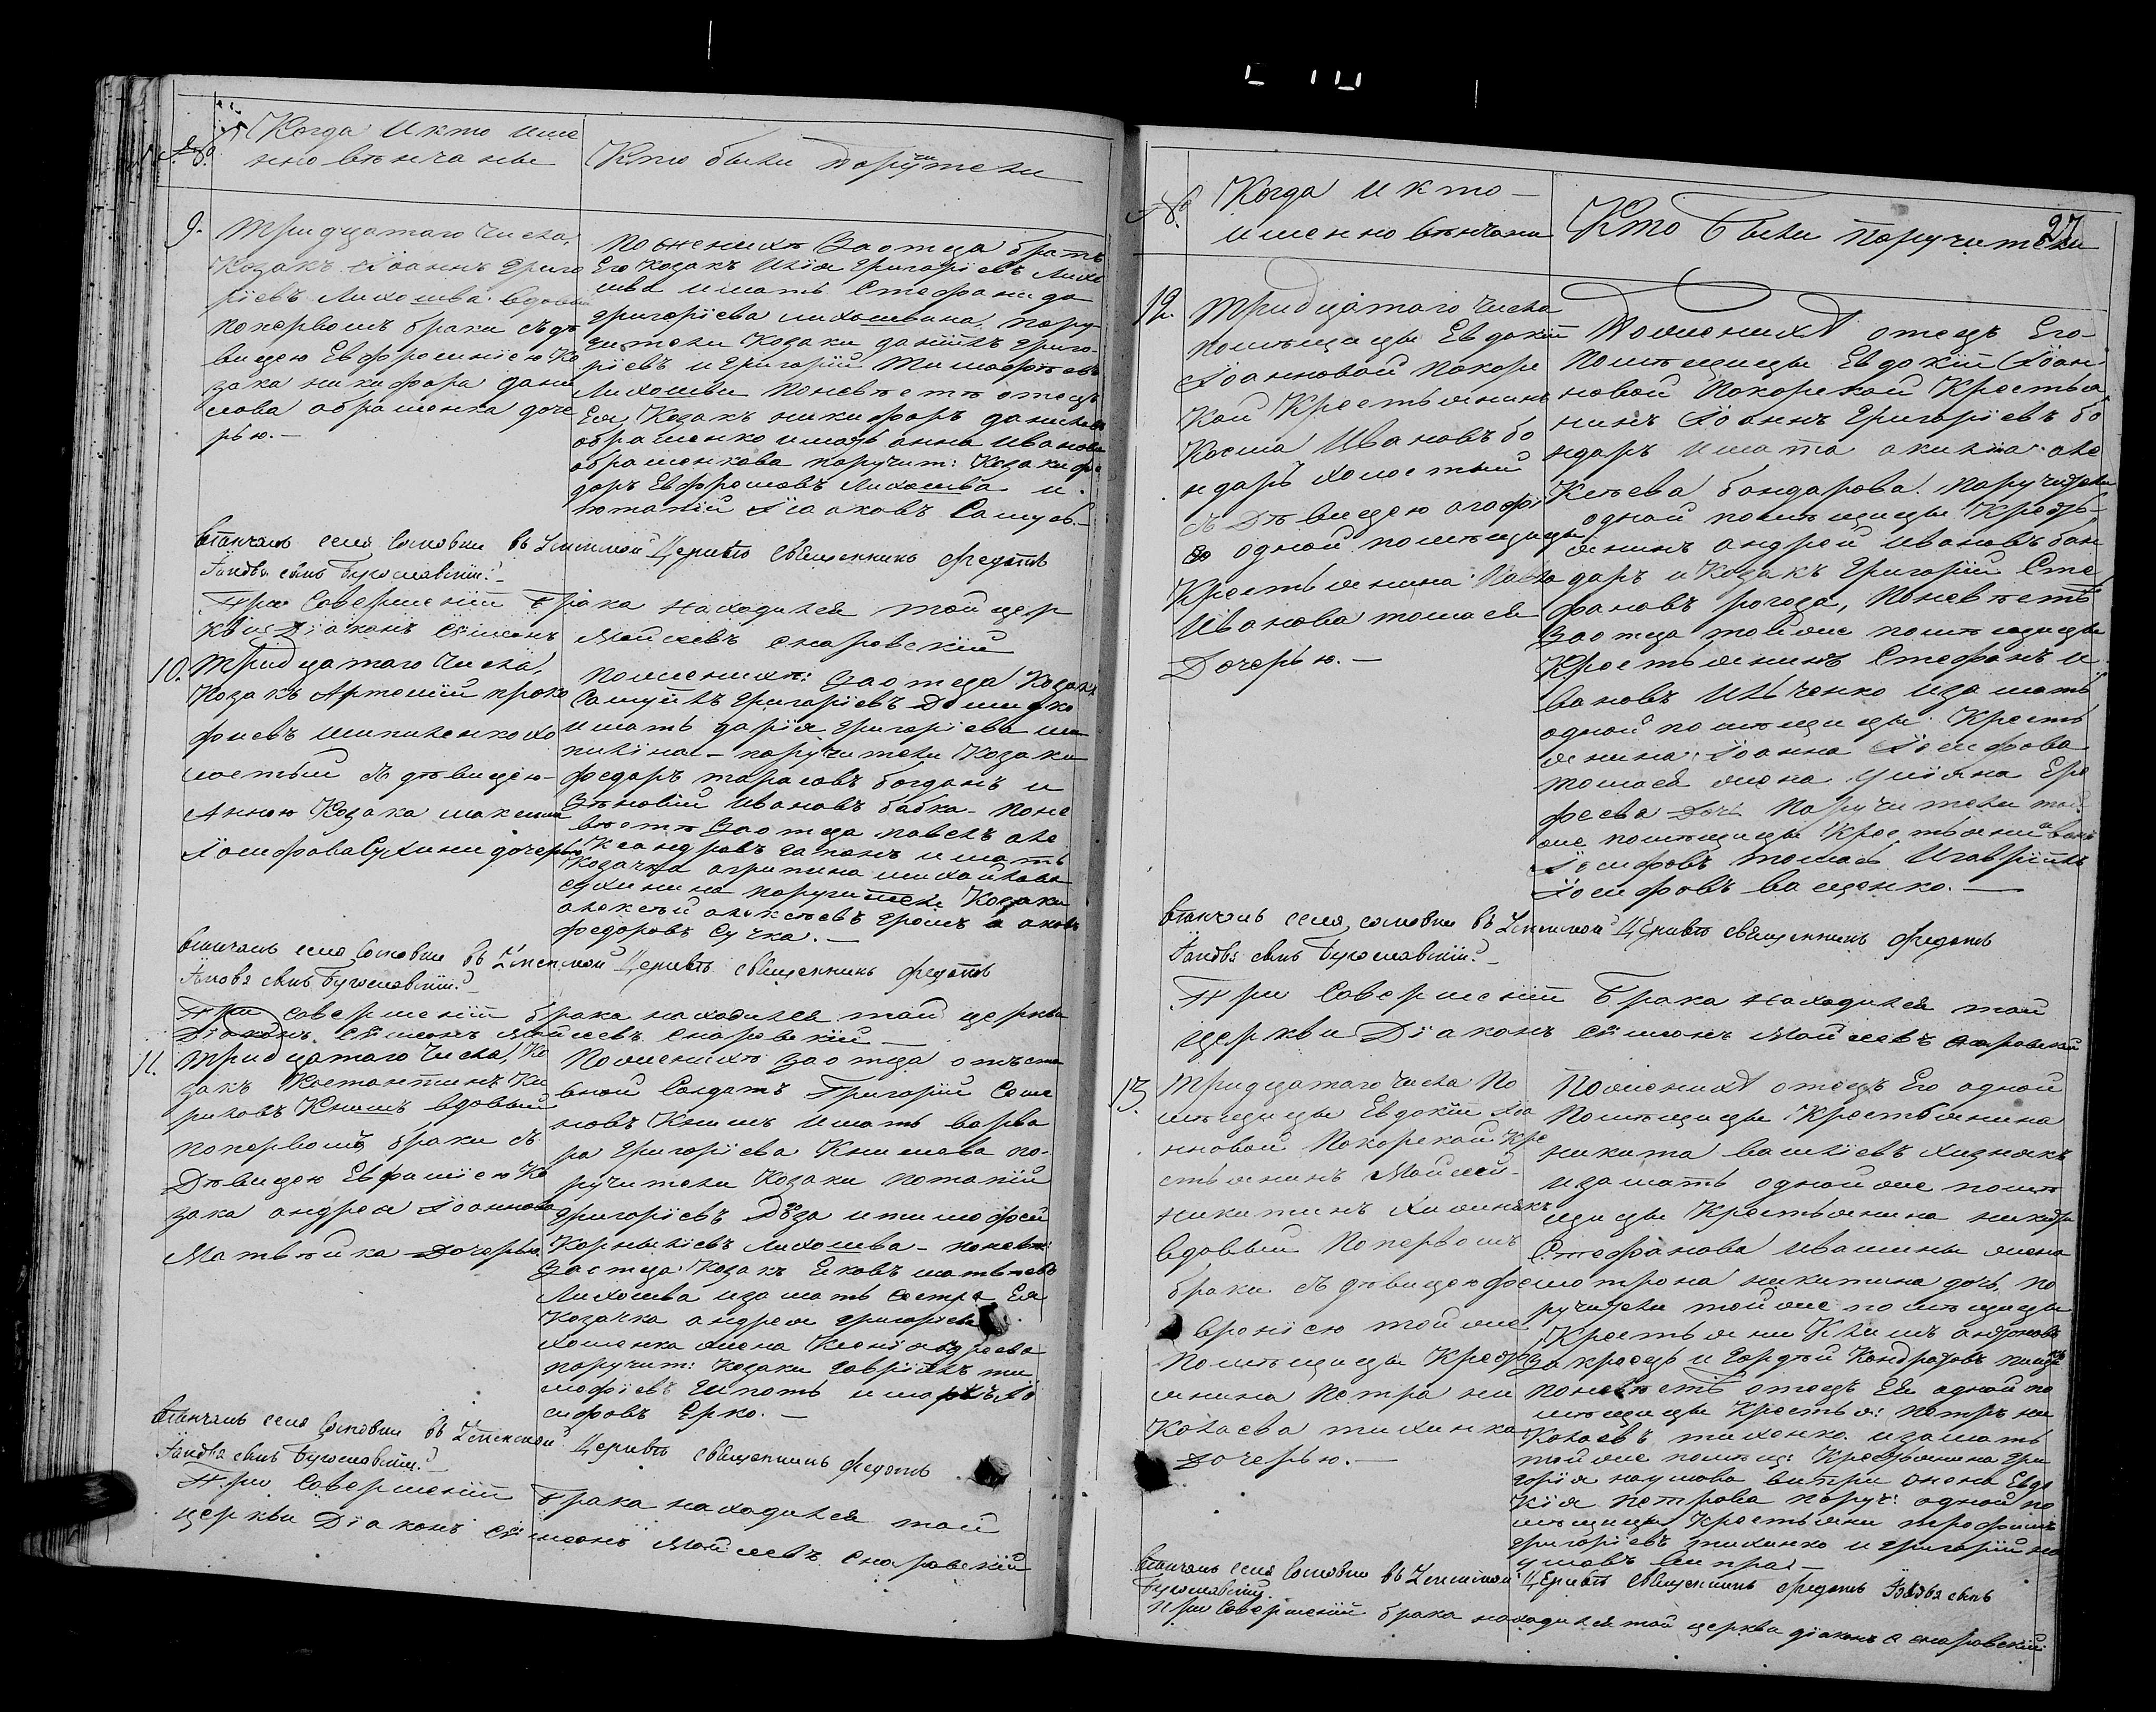 №
Когда и кто име
нно вѣнчаны
Кто были поручители
9.
Тридцатаго числа,
Козакъ Іоаннъ Григо
ріевъ Лихошва вдовый
поперьвомъ браки съ дѣ
вицею Евфросинією Ко
зака никифора дани
лова абраменка доче
рью.-
По женихѣ за отца братъ
Его козакъ Илія Григоріевъ Лихо
шва и мать Стефанида
Григоріева лихошвина. пору-
чители Козаки даніилъ Григо-
ріевъ и Григорій Тимофѣевъ
Лихошви по невѣстѣ отецъ
Ея Козакъ никифоръ даниловъ
абраменко и мать анна Иванова
абраменкова поручит: Козаки фе
доръ Евфремовъ Лихошва и
потапій Ісааковъ Самусь.-
вѣнчалъ сея Церквѣ священникъ Федотъ
При Совершеніи брака находился той цер
кви Діаконъ Симеонъ Мойсеевъ Снаровскій
10.
Тридцатаго числа,
Козакъ Артемій проко
фиевъ шипиленко хо
лостый съ дѣвицею-
Анною Козака максима
Іосифова Сухини дочерью
По женихѣ: за отца Козакъ
Самуилъ Григоріевъ
и мать дарія Григоріева ши
пиліна - поручители Козаки
федоръ тарасовъ богданъ и
Зѣновій Ивановъ бабка - поне
вѣстѣ за отца павелъ але
ксандровъ гапонъ и мать
Козачка агрипина михайлова
сухинина поручители Козаки
алексѣй алексѣевъ Громъ
федоровъ Сучка.-
вѣнчалъ сея Церквѣ священникъ Федотъ
При совершеніи брака находился той церкви
Діаконъ Симеонъ Мойсеевъ Снаровскій -
11.
Тридцатаго числа, Ко
закъ Костантинъ Ки
риловъ Книшъ вдовый
поперьвомъ браки съ
Дѣвицею Евфимією Ко
зака андрея Іоаннова
Матвѣйка дочерью.
По женихѣ за отца отъста
вной Салдатъ Григорій Семе
новъ Книшъ и мать варва
ра Григоріева Книшева по-
ручители Козаки потапій
Григоріевъ Дѣза и тимофей
Корниліевъ Лихошва - поневѣ:
За отца: Козакъ Яковъ матвѣевъ
Лихошва и за мать сестра Ея
Козачка андрея Григоріева
хоменка жена
поручит: козаки гавріилъ ти
мофіевъ и маркъ Іо
сифовъ Ерко.-
вѣнчалъ сея Церквѣ священникъ Федотъ
При Совершеніи брака находился той
церкви Діаконъ Симеонъ Мойсеевъ Снаровскій
№
Когда и кто -
именно вѣнчани
Кто были поручители
27
12.
Тридцатаго числа
помѣщицы Евдокіи
Іоанновой Покорс
кой Крестьянинъ
Косма Ивановъ бо
ндарь холостый
съ дѣвицею агафі
ею одной помѣщицы
Крестьянина Павла
Иванова томася
Дочерью.-
По женихѣ отецъ Его
помѣщицы Евдокіи Іоан
новой Покорской Крестья
нинъ Іоаннъ Григоріевъ бо
ндарь и мать акилина але
ксѣева бондарова. поручители
одной помѣщицы Крестъ-
янинъ андрей Ивановъ бон
дарь и Козакъ Григорій Сте
фановъ рогоза, поневѣстѣ
За отца той же помѣщицы
Крестьянинъ Стефанъ и
вановъ Ильченко и за мать
одной помѣщицы Кресть
янина Іоанна Іосифова
томася жена уліяна Еро
феева дочь поручители той
же помѣщицы Крестьяни иванъ
Іосифовъ томась и гавріилъ
Іосифовъ ващенко.-
вѣнчалъ сея Церквѣ священникъ Федотъ
При Совершеніи Брака находился той
церкви Діаконъ Симеонъ Мойсеевъ Снаровскій
13.
Тридцатаго числа По
мѣщицы Евдокіи Іоа
нновой Покорской Кре
стьянинъ Мойсей
никитинъ
вдовый поперьвомъ
браки съ дѣвицею фе
вронією той же
помѣщицы Кресть
янина Петра ни
колаева тихинка
дочерью.-
По женихѣ отецъ Его одной
помѣщицы Крестьянина
никита василіевъ хижнякъ
и за мать одной же помѣ
щицы Крестьянина никифора
Стефанова Ивашины жена
мотрона никитина дочь, по
ручители той же помѣщицы
Крестьяни Климъ андроновъ
и Гордѣй Кондратовъ
поневѣстѣ отецъ Ея одной по
мѣщицы Крестья: петръ ни
колаевъ тихенко и за мать
той же помѣщ: Крестьянина Гри
горія наумова жена Евдо
кія петрова поруч: одной по
мѣщицы Крестьяни трофимъ
григоріевъ тихинко и григорій на
умовъ
вѣнчалъ сея Церквѣ священникъ Федотъ
При Совершеніи брака находился той церкви діаконъ С Снаровскій